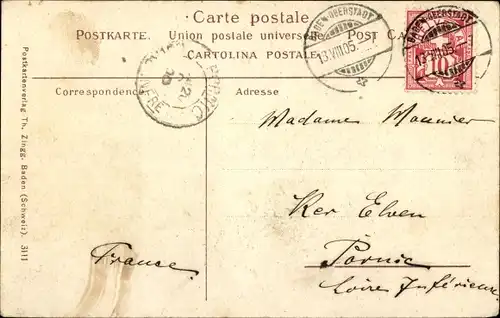 Carte postale
POSTKARTE. Union postale universelle. POST CA
CARTOLINA POSTALE
BADEN-OBERSTADT
13.VIII.05
BADEN-OBERSTADT
13.VIII.05
10
PORNIC
Correspondence
Adresse
Madame Mounier
Ker Elven
Pornic
Loire Inférieure
France
Postkartenverlag Th. Zingg. Baden (Schweiz). 3111